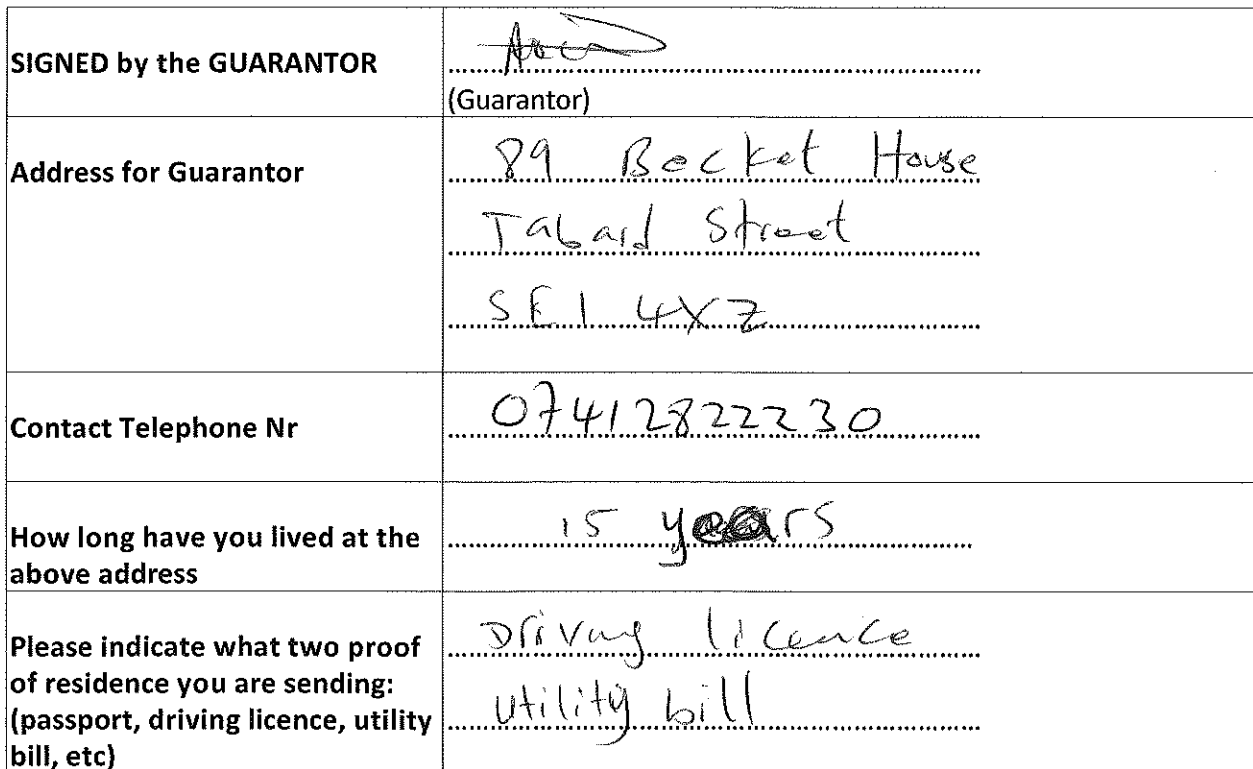 SIGNED by the GUARANTOR
(Guarantor)
Address for Guarantor
89 Becket House
Tabard Street
SE1 4XZ
Contact Telephone Nr
07412822230
How long have you lived at the
above address
15 years
Please indicate what two proof
of residence you are sending:
(passport, driving licence, utility
bill, etc)
Driving licence
utility bill